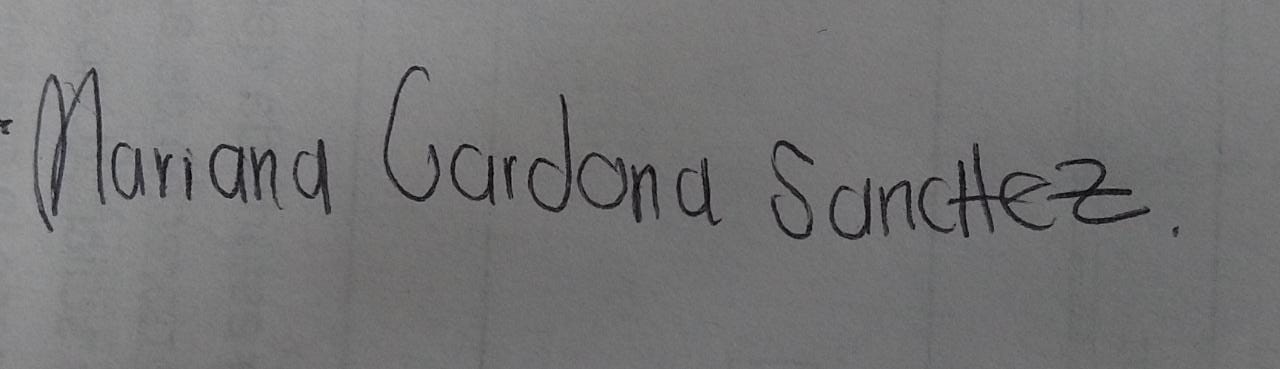 Mariana Cardona SancHez.